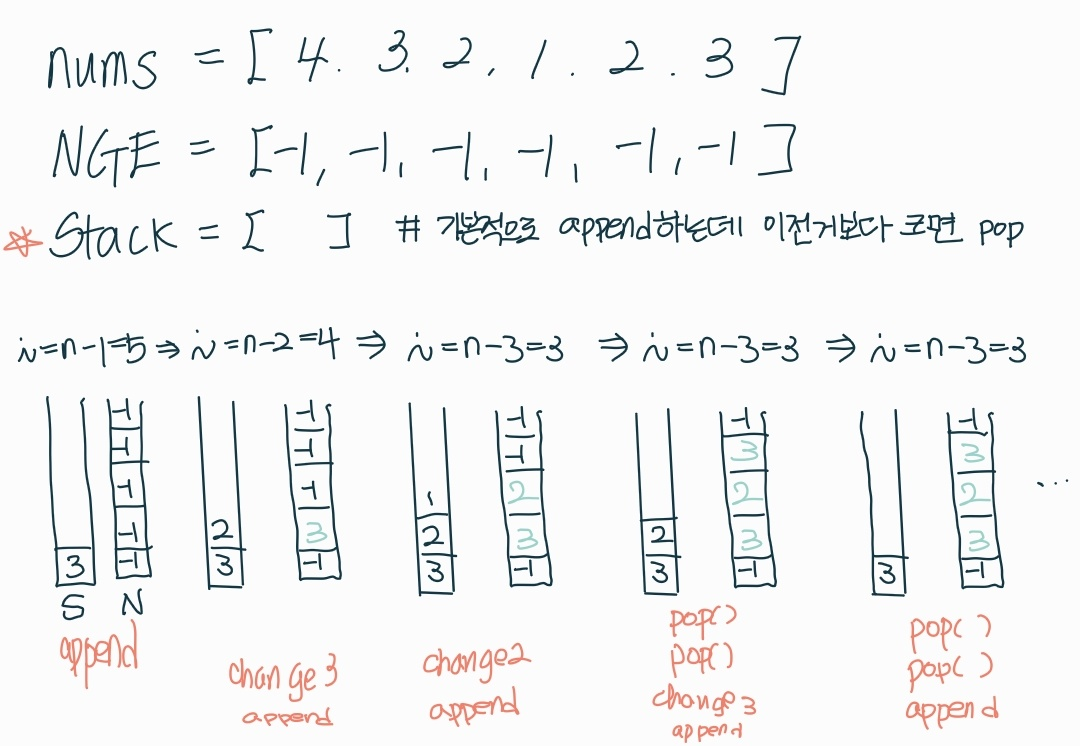 nums = [ 4. 3. 2, 1. 2. 3 ]
NGE = [-1, -1, -1, -1, -1, -1 ]
* Stack = [ ] # 기본적으로 append하는데 이전거보다 크면 pop
i=n-1=5 ⇒ i=n-2=4 ⇒ i=n-3=3 ⇒ i=n-3=3 ⇒ i=n-3=3
-1 -1 -1 -1 -1
-1 -1 -1 3 3
-1 -1 2 2 2
-1 2 3 1 2 3 2 3 3
3 -1 3 -1 3 -1 3 -1 3 -1
...
S N
append
change 3
append
change 2
append
pop()
pop()
change 3
append
pop( )
pop( )
append